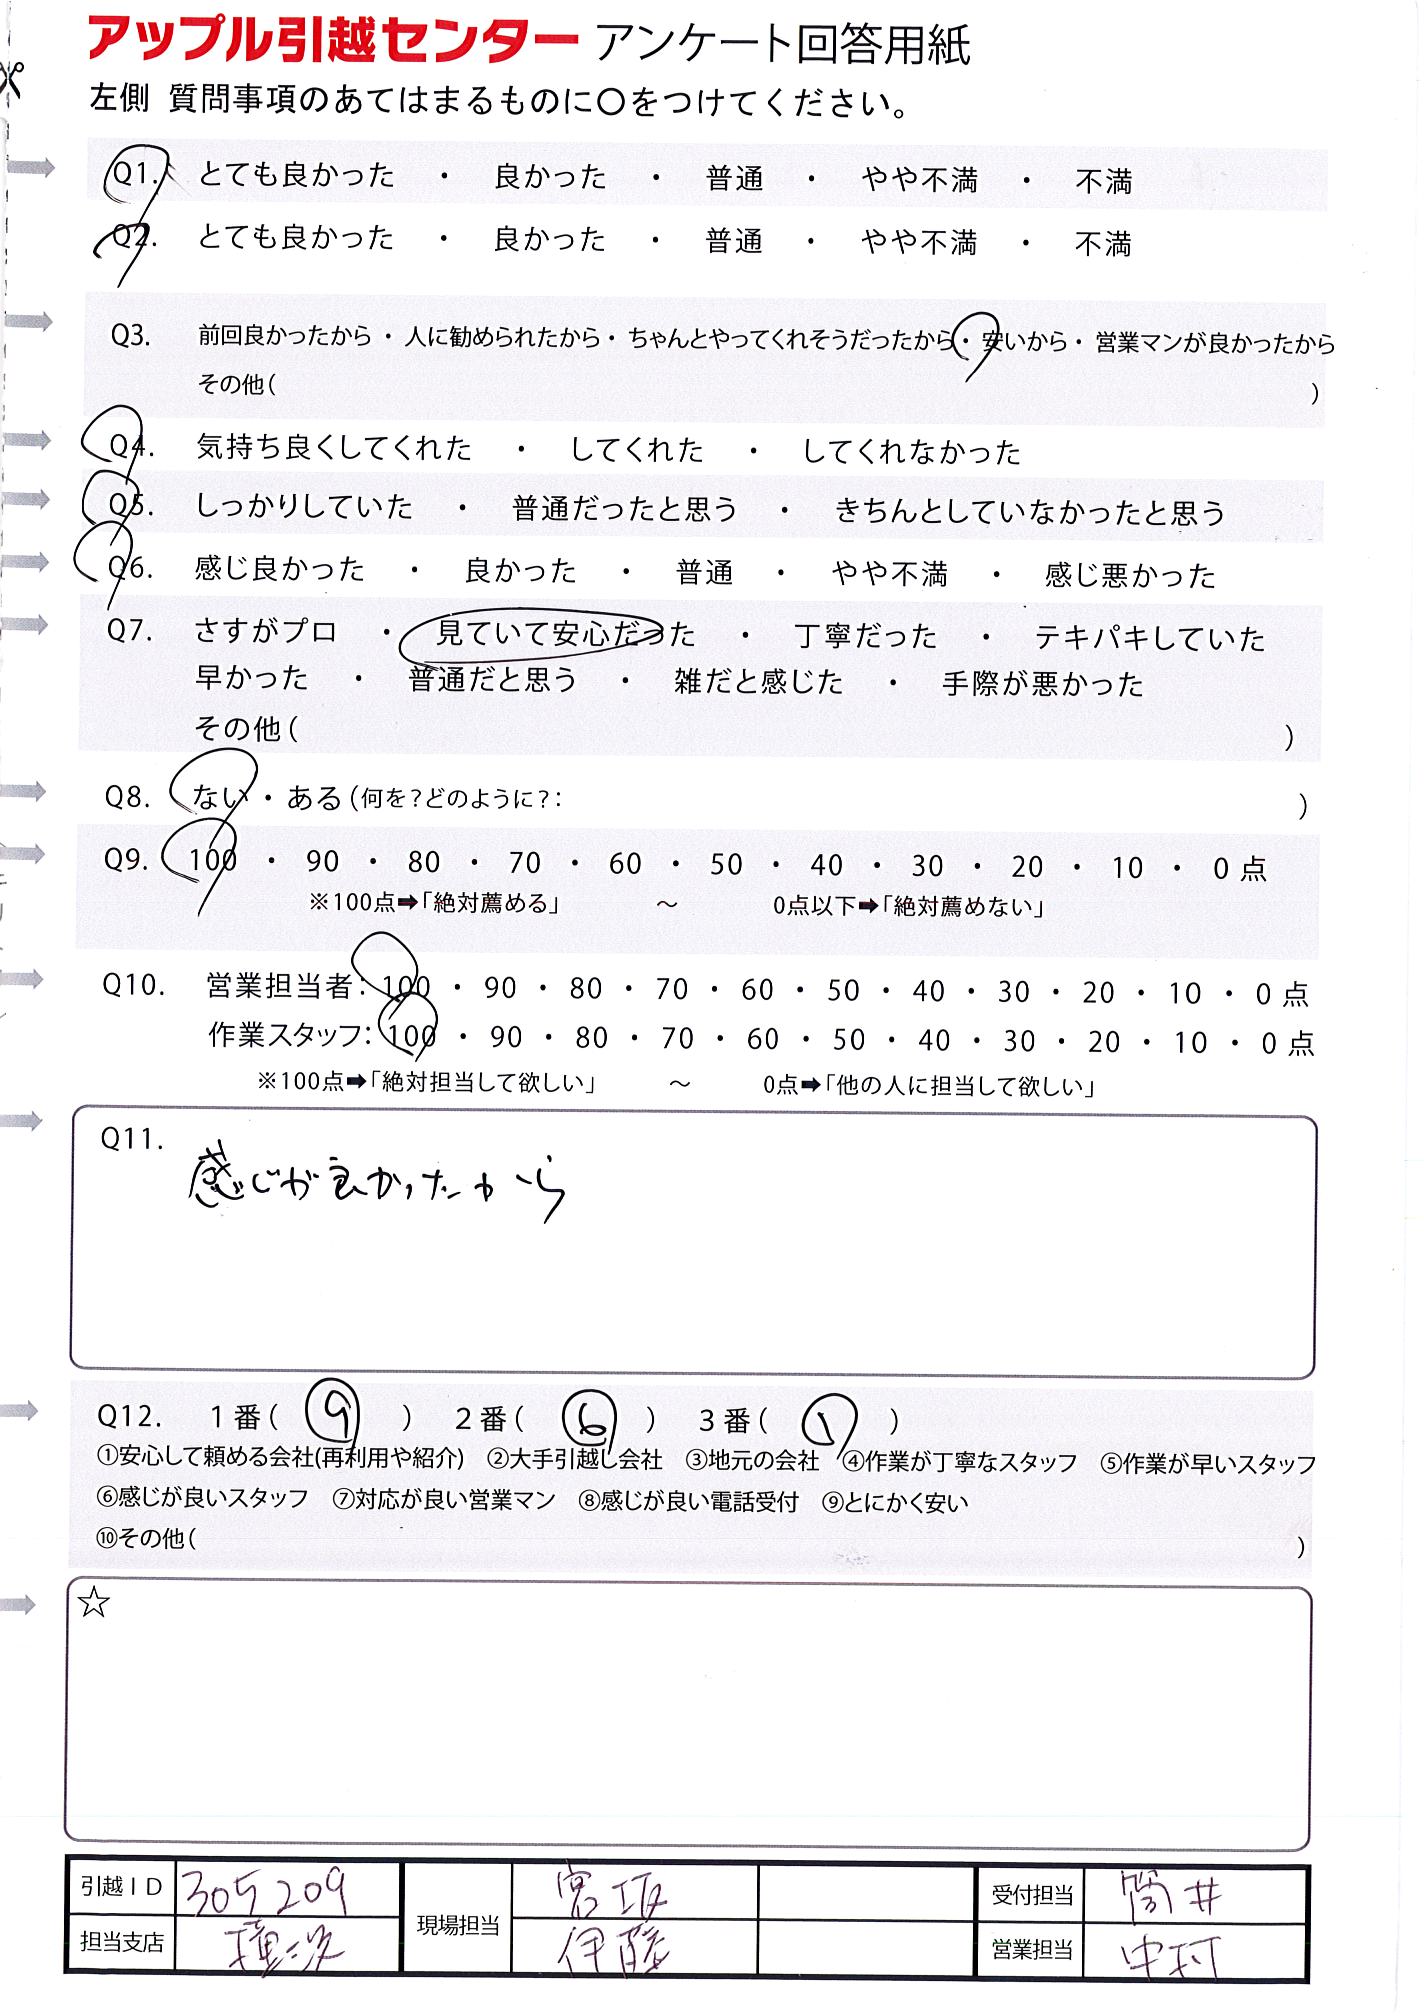 アップル引越センター アンケート回答用紙
左側 質問事項のあてはまるものに〇をつけてください。
Q1. とても良かった ・ 良かった ・ 普通 ・ やや不満 ・ 不満
Q2. とても良かった ・ 良かった ・ 普通 ・ やや不満 ・ 不満
Q3. 前回良かったから・人に勧められたから・ちゃんとやってくれそうだったから・安いから・営業マンが良かったから
その他( )
Q4. 気持ち良くしてくれた ・ してくれた ・ してくれなかった
Q5. しっかりしていた ・ 普通だったと思う ・ きちんとしていなかったと思う
Q6. 感じ良かった ・ 良かった ・ 普通 ・ やや不満 ・ 感じ悪かった
Q7. さすがプロ ・ 見ていて安心だった ・ 丁寧だった ・ テキパキしていた
早かった ・ 普通だと思う ・ 雑だと感じた ・ 手際が悪かった
その他( )
Q8. ない・ある(何を?どのように?: )
Q9. 100 ・ 90 ・ 80 ・ 70 ・ 60 ・ 50 ・ 40 ・ 30 ・ 20 ・ 10 ・ 0 点
※100点➡「絶対薦める」 〜 0点以下➡「絶対薦めない」
Q10. 営業担当者: 100 ・ 90 ・ 80 ・ 70 ・ 60 ・ 50 ・ 40 ・ 30 ・ 20 ・ 10 ・ 0 点
作業スタッフ: 100 ・ 90 ・ 80 ・ 70 ・ 60 ・ 50 ・ 40 ・ 30 ・ 20 ・ 10 ・ 0 点
※100点➡「絶対担当して欲しい」 〜 0点➡「他の人に担当して欲しい」
Q11.
感じが良かったから
Q12. 1番( ⑨ ) 2番( ⑥ ) 3番( ① )
①安心して頼める会社(再利用や紹介) ②大手引越し会社 ③地元の会社 ④作業が丁寧なスタッフ ⑤作業が早いスタッフ
⑥感じが良いスタッフ ⑦対応が良い営業マン ⑧感じが良い電話受付 ⑨とにかく安い
⑩その他( )
☆
引越ID 305209 現場担当 宮坂 受付担当 筒井
担当支店 横浜 伊藤 営業担当 中村